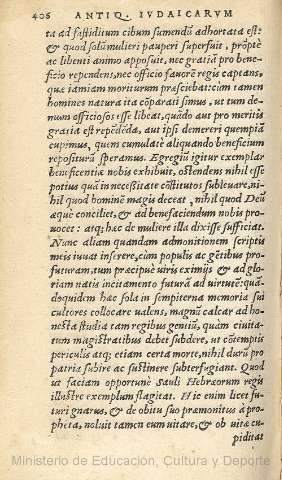 406 ANTIQ. IVDAICARVM
ta ad fastiditum cibum sumendū adhortata est:
& quod solū mulieri pauperi superfuit, prōptè
ac libenti animo apposuit, nec gratiā pro bene-
ficio rependens, nec officio fauorē regis captans,
quæ iamiam moriturum præsciebat: cùm tamen
homines natura ita cōparati simus, ut tum de-
mum officiosos esse libeat, quādo aut pro meritis
gratia est repēdēda, aut ipsi demereri quempiā
cupimus, quem cumulatè aliquando beneficium
repositurū speramus. Egregiū igitur exemplar
beneficentiæ nobis exhibuit, ostendens nihil esse
potius quā in necessitate cōstitutos subleuare, ni-
hil quod hominē magis deceat, nihil quod Deū
æquè conciliet, & ad benefaciendum nobis pro-
uocet: atq; hæc de muliere illa dixisse sufficiat.
Nunc aliam quandam admonitionem scriptis
meis iuuat inserere, cùm populis ac gētibus pro-
futuram, tum præcipuè uiris eximijs & ad glo-
riam natis incitamento futurā ad uirtutē: quā-
doquidem hæc sola in sempiterna memoria sui
cultores collocare ualens, magnū calcar ad ho-
nesta studia tam regibus gentiū, quàm ciuita-
tum magistratibus debet subdere, ut cōtemptis
periculis atq; etiam certa morte, nihil durū pro
patria subire ac sustinere subterfugiant. Quod
ut faciam opportunè Sauli Hebræorum regis
illustre exemplum flagitat. Hic enim licet fu-
turi gnarus, & de obitu suo præmonitus à pro-
pheta, noluit tamen eum uitare, & ob uitæ cu-
piditat
Ministerio de Educación, Cultura y Deporte